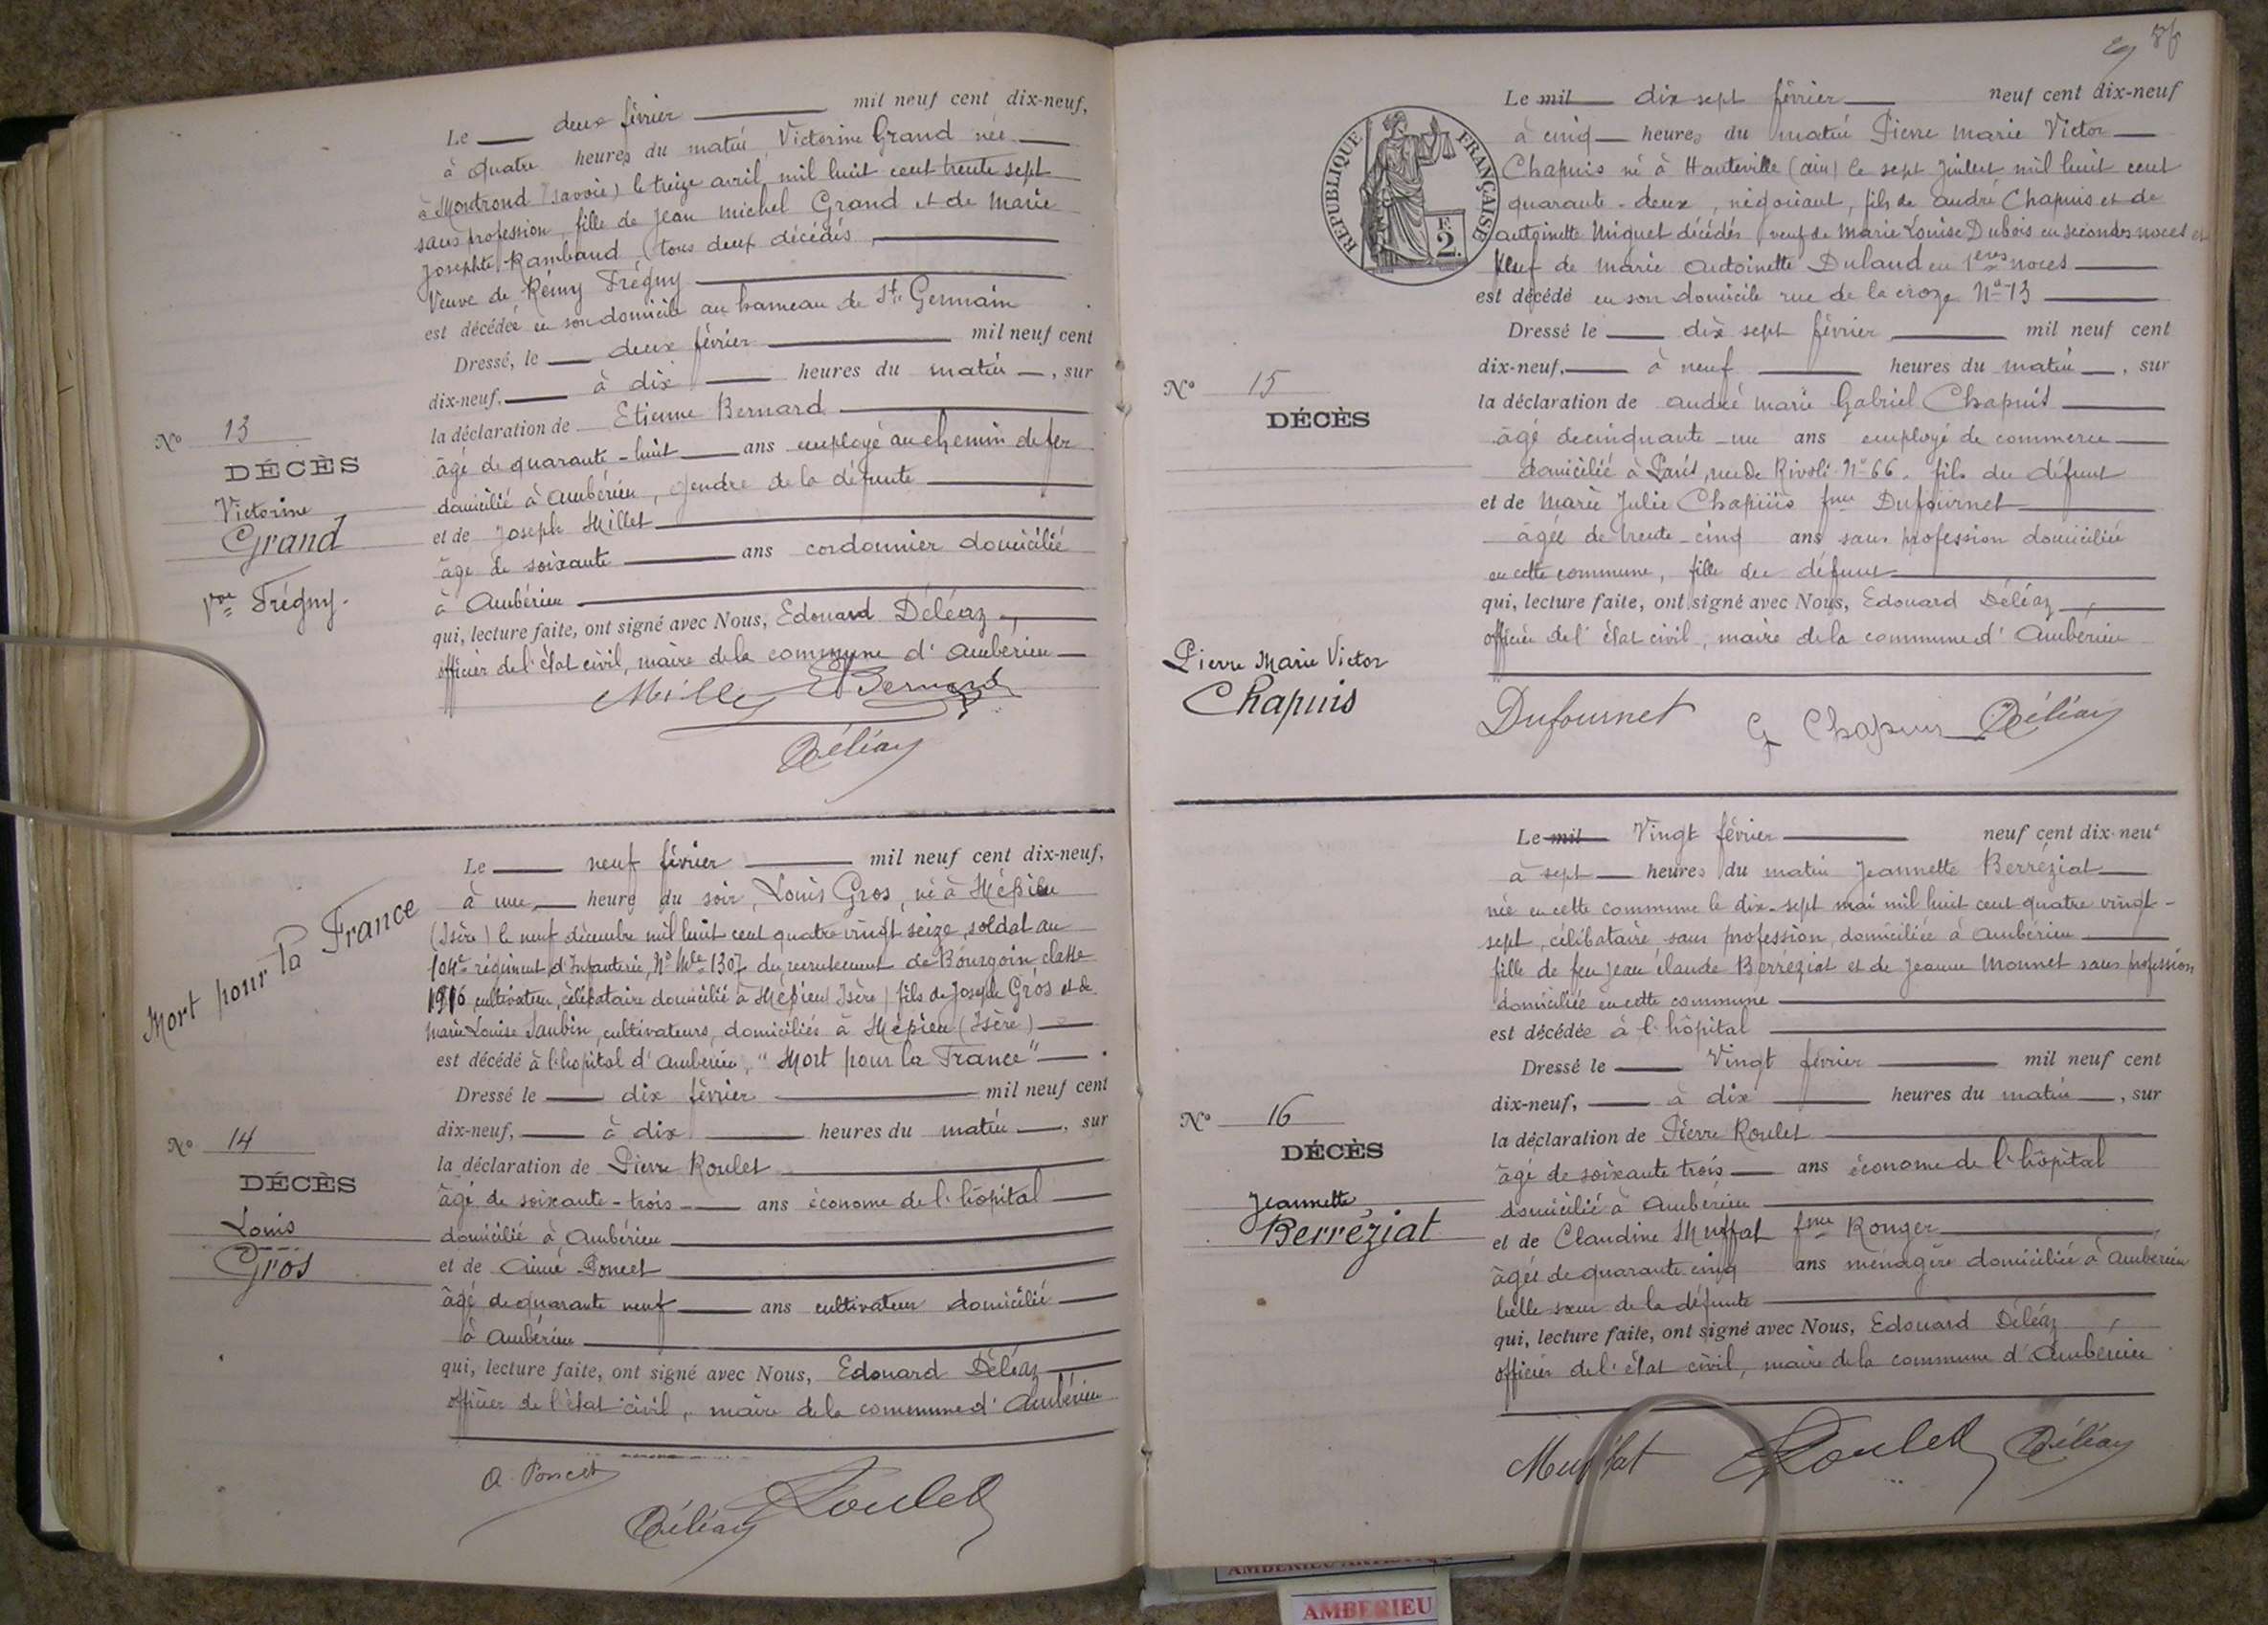 Le deux février mil neuf cent dix-neuf,
à quatre heures du matin Victorine Grand née
à Montrond (Savoie) le treize avril mil huit cent trente sept
sans profession, fille de Jean Michel Grand et de Marie
Josephte Rambaud tous deux décédés,
Veuve de Rémy Frégny
est décédée en son domicile au hameau de St Germain
Dressé, le deux février mil neuf cent
dix-neuf, à dix heures du matin, sur
la déclaration de Etienne Bernard
âgé de quarante-huit ans employé au chemin de fer
domicilié à Ambérieu, gendre de la défunte
et de Joseph Millet
âgé de soixante ans cordonnier domicilié
à Ambérieu
qui, lecture faite, ont signé avec Nous, Edouard Déléaz,
officier de l'état civil, maire de la commune d'Ambérieu
EBernard
Déléaz
N° 13
DÉCÈS
Victorine
Grand
Vve Frégny.
Le neuf février mil neuf cent dix-neuf,
à une heure du soir, Louis Gros, né à Hépieu
(Isère) le neuf décembre mil huit cent quatre vingt seize, soldat au
104e régiment d'Infanterie, N° Mle 1307 du recrutement de Bourgoin classe
1916 cultivateur, célibataire domicilié à Hépieu (Isère) fils de Joseph Gros et de
Marie Louise Jaubin, cultivateurs, domiciliés à Hépieu (Isère)
est décédé à l'hopital d'Ambérieu, "Mort pour la France".
Dressé le dix février mil neuf cent
dix-neuf, à dix heures du matin, sur
la déclaration de Pierre Roulet
âgé de soixante-trois ans économe de l'hôpital
domicilié à Ambérieu
et de Aimé Poncet
âgé de quarante neuf ans cultivateur domicilié
à Ambérieu
qui, lecture faite, ont signé avec Nous, Edouard Déléaz
officier de l'état civil, maire de la commune d'Ambérieu
A. Poncet
Déléaz Roulet
Mort pour la France
N° 14
DÉCÈS
Louis
Gros
REPUBLIQUE FRANÇAISE
F.
2.
Le mil dix sept février neuf cent dix-neuf
à cinq heures du matin Pierre Marie Victor
Chapuis né à Hauteville (ain) le sept Juillet mil huit cent
quarante-deux, négociant, fils de andré Chapuis et de
antoinette Miguet décédés, veuf de Marie Louise Dubois en secondes noces et
Veuf de Marie Antoinette Duland en 1eres noces
est décédé en son domicile rue de la croze N° 13
Dressé le dix sept février mil neuf cent
dix-neuf, à neuf heures du matin, sur
la déclaration de andré marie Gabriel Chapuis
âgé de cinquante-un ans employé de commerce
domicilié à Paris, rue de Rivoli N° 66. fils du défunt
et de Marie Julie Chapuis fme Dufournet
âgée de trente-cinq ans sans profession domiciliée
en cette commune, fille du défunt
qui, lecture faite, ont signé avec Nous, Edouard Déléaz,
officier de l'état civil, maire de la commune d'Ambérieu
Dufournet G Chapuis Déléaz
N° 15
DÉCÈS
Pierre Marie Victor
Chapuis
Le mil Vingt février neuf cent dix-neuf
à sept heures du matin Jeannette Berréziat
née en cette commune le dix-sept mai mil huit cent quatre vingt-
sept, célibataire sans profession, domiciliée à Ambérieu
fille de feu Jean claude Berréziat et de Jeanne Monnet sans profession
domiciliée en cette commune
est décédée à l'hôpital
Dressé le Vingt février mil neuf cent
dix-neuf, à dix heures du matin, sur
la déclaration de Pierre Roulet
âgé de soixante trois ans économe de l'hôpital
domicilié à Ambérieu
et de Claudine Muffat fme Ronger
âgée de quarante cinq ans ménagère domiciliée à Ambérieu
belle sœur de la défunte
qui, lecture faite, ont signé avec Nous, Edouard Déléaz,
officier de l'état civil, maire de la commune d'Ambérieu
Muffat Roulet Déléaz
N° 16
DÉCÈS
Jeannette
Berréziat
AMBERIEU